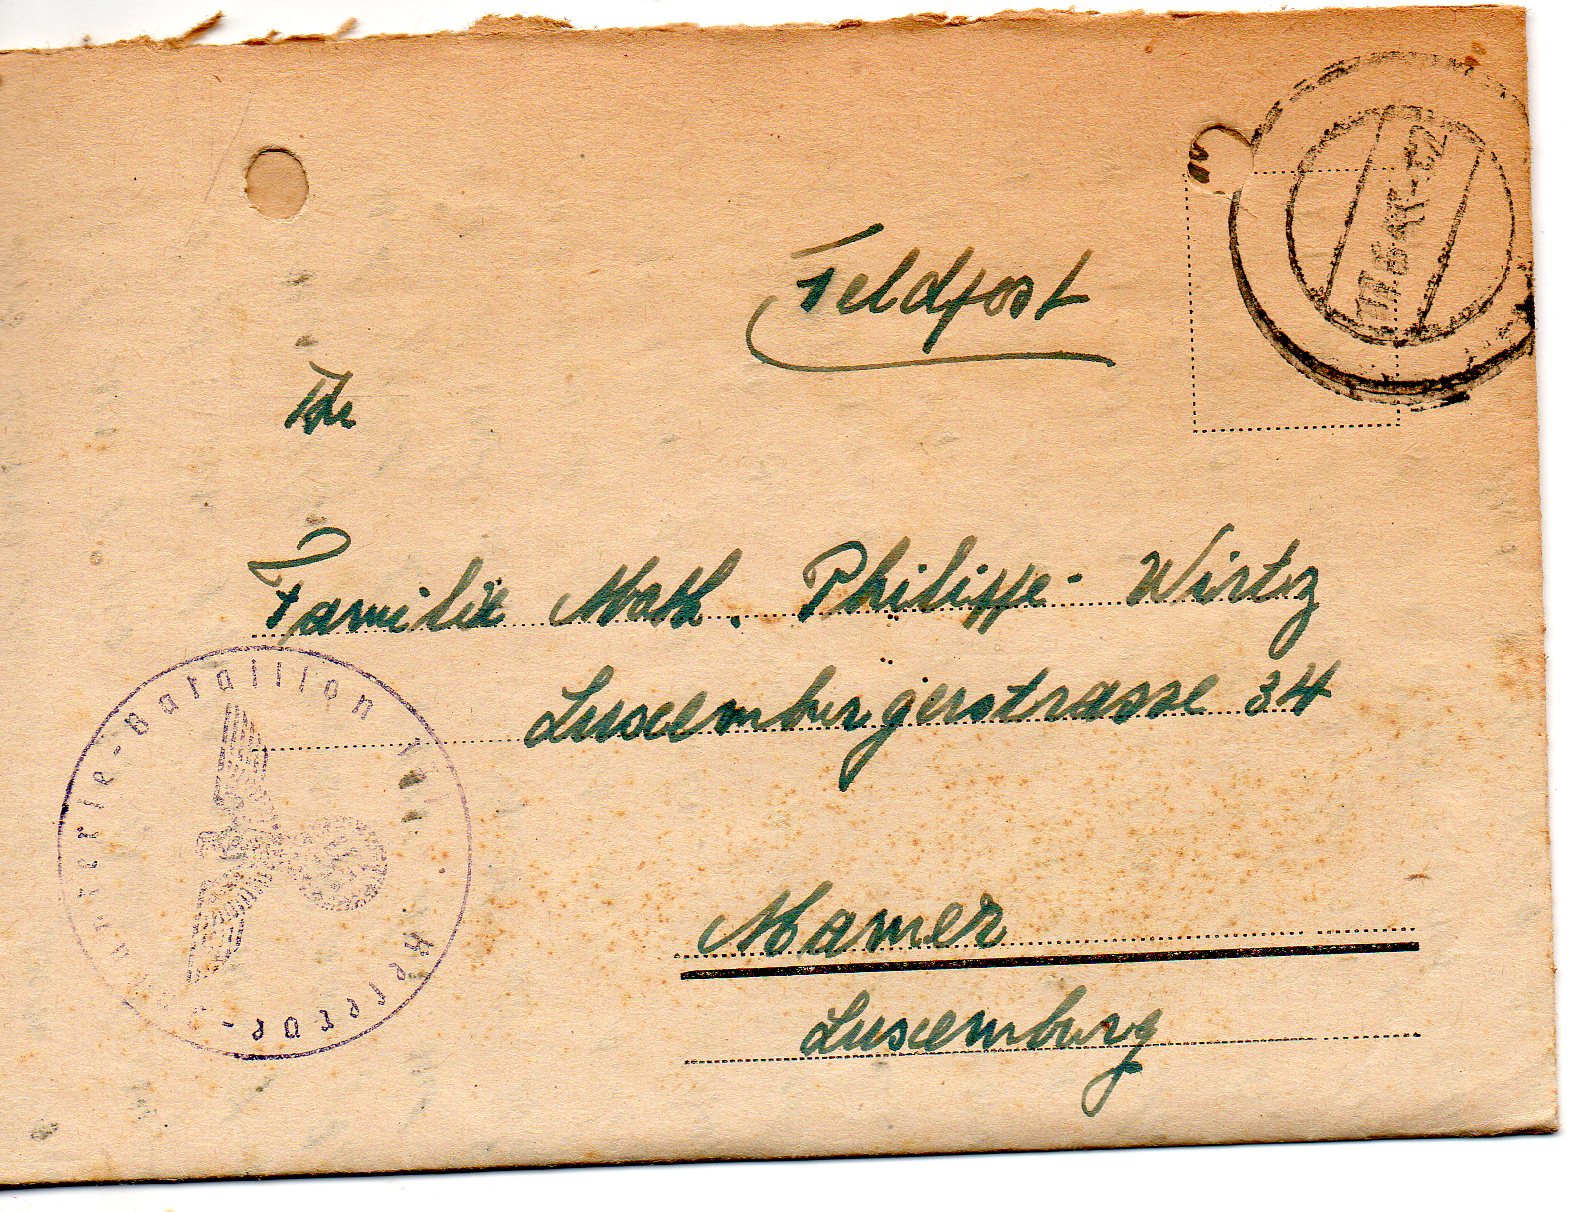 Feldpost
An
Familie Math. Philippe-Wirtz
Luxemburgerstrasse 34
Mamer
Luxemburg
Bataillon